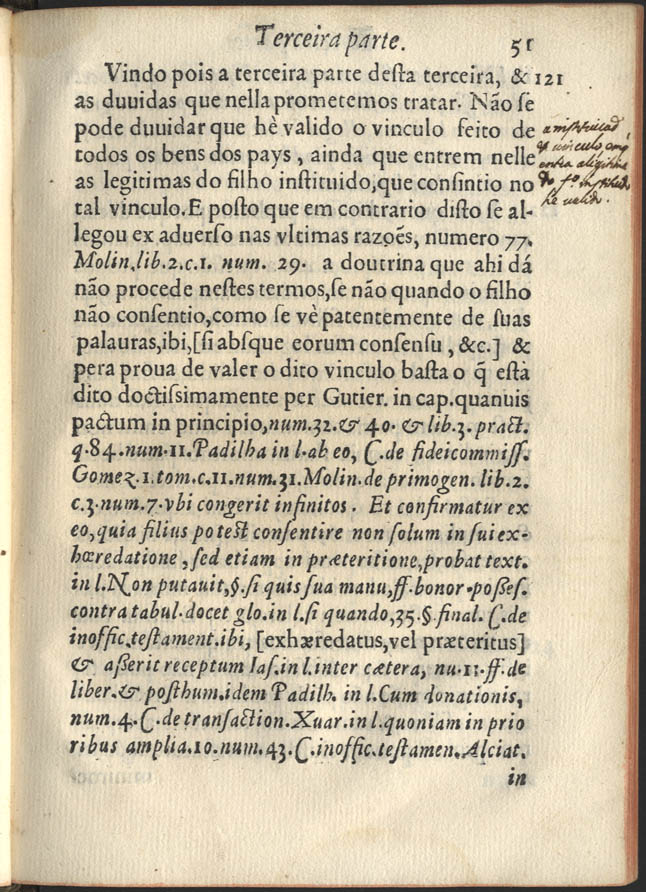 Terceira parte. 51
Vindo pois a terceira parte desta terceira, & 121
as duuidas que nella prometemos tratar. Não ſe
pode duuidar que hè valido o vinculo feito de
todos os bens dos pays, ainda que entrem nelle
as legitimas do filho inſtituido,que conſintio no
tal vinculo.E poſto que em contrario diſto ſe al-
legou ex aduerſo nas vltimas razoẽs, numero 77.
Molin.lib.2.c.1. num. 29. a doutrina que ahi dá
não procede neſtes termos,ſe não quando o filho
não conſentio,como ſe vè patentemente de ſuas
palauras,ibi,[ſi abſque eorum conſenſu, &c.] &
pera proua de valer o dito vinculo baſta o q̃ eſtà
dito doctiſsimamente per Gutier. in cap.quanuis
pactum in principio,num.32.& 40. & lib.3. pract.
q.84.num.11.Padilha in l.ab eo, C.de fideicommiſſ.
Gomez.1.tom.c.11.num.31.Molin.de primogen. lib.2.
c.3.num.7.vbi congerit infinitos. Et confirmatur ex
eo,quia filius poteſt conſentire non ſolum in ſui ex-
hœredatione, ſed etiam in præteritione,probat text.
in l.Non putauit,§.ſi quis ſua manu,ff.bonor.poßeſ.
contra tabul.docet glo.in l.ſi quando,35.§.final. C.de
inoffic.teſtament.ibi, [exhæredatus,vel præteritus]
& aßerit receptum Iaſ.in l.inter cætera, nu.11.ff.de
liber.& poſthum.idem Padilh. in l.Cum donationis,
num.4.C.de tranſaction.Xuar.in l.quoniam in prio
ribus amplia.10.num.43.C.inoffic.teſtamen.Alciat.
in
vinculo
he valido.